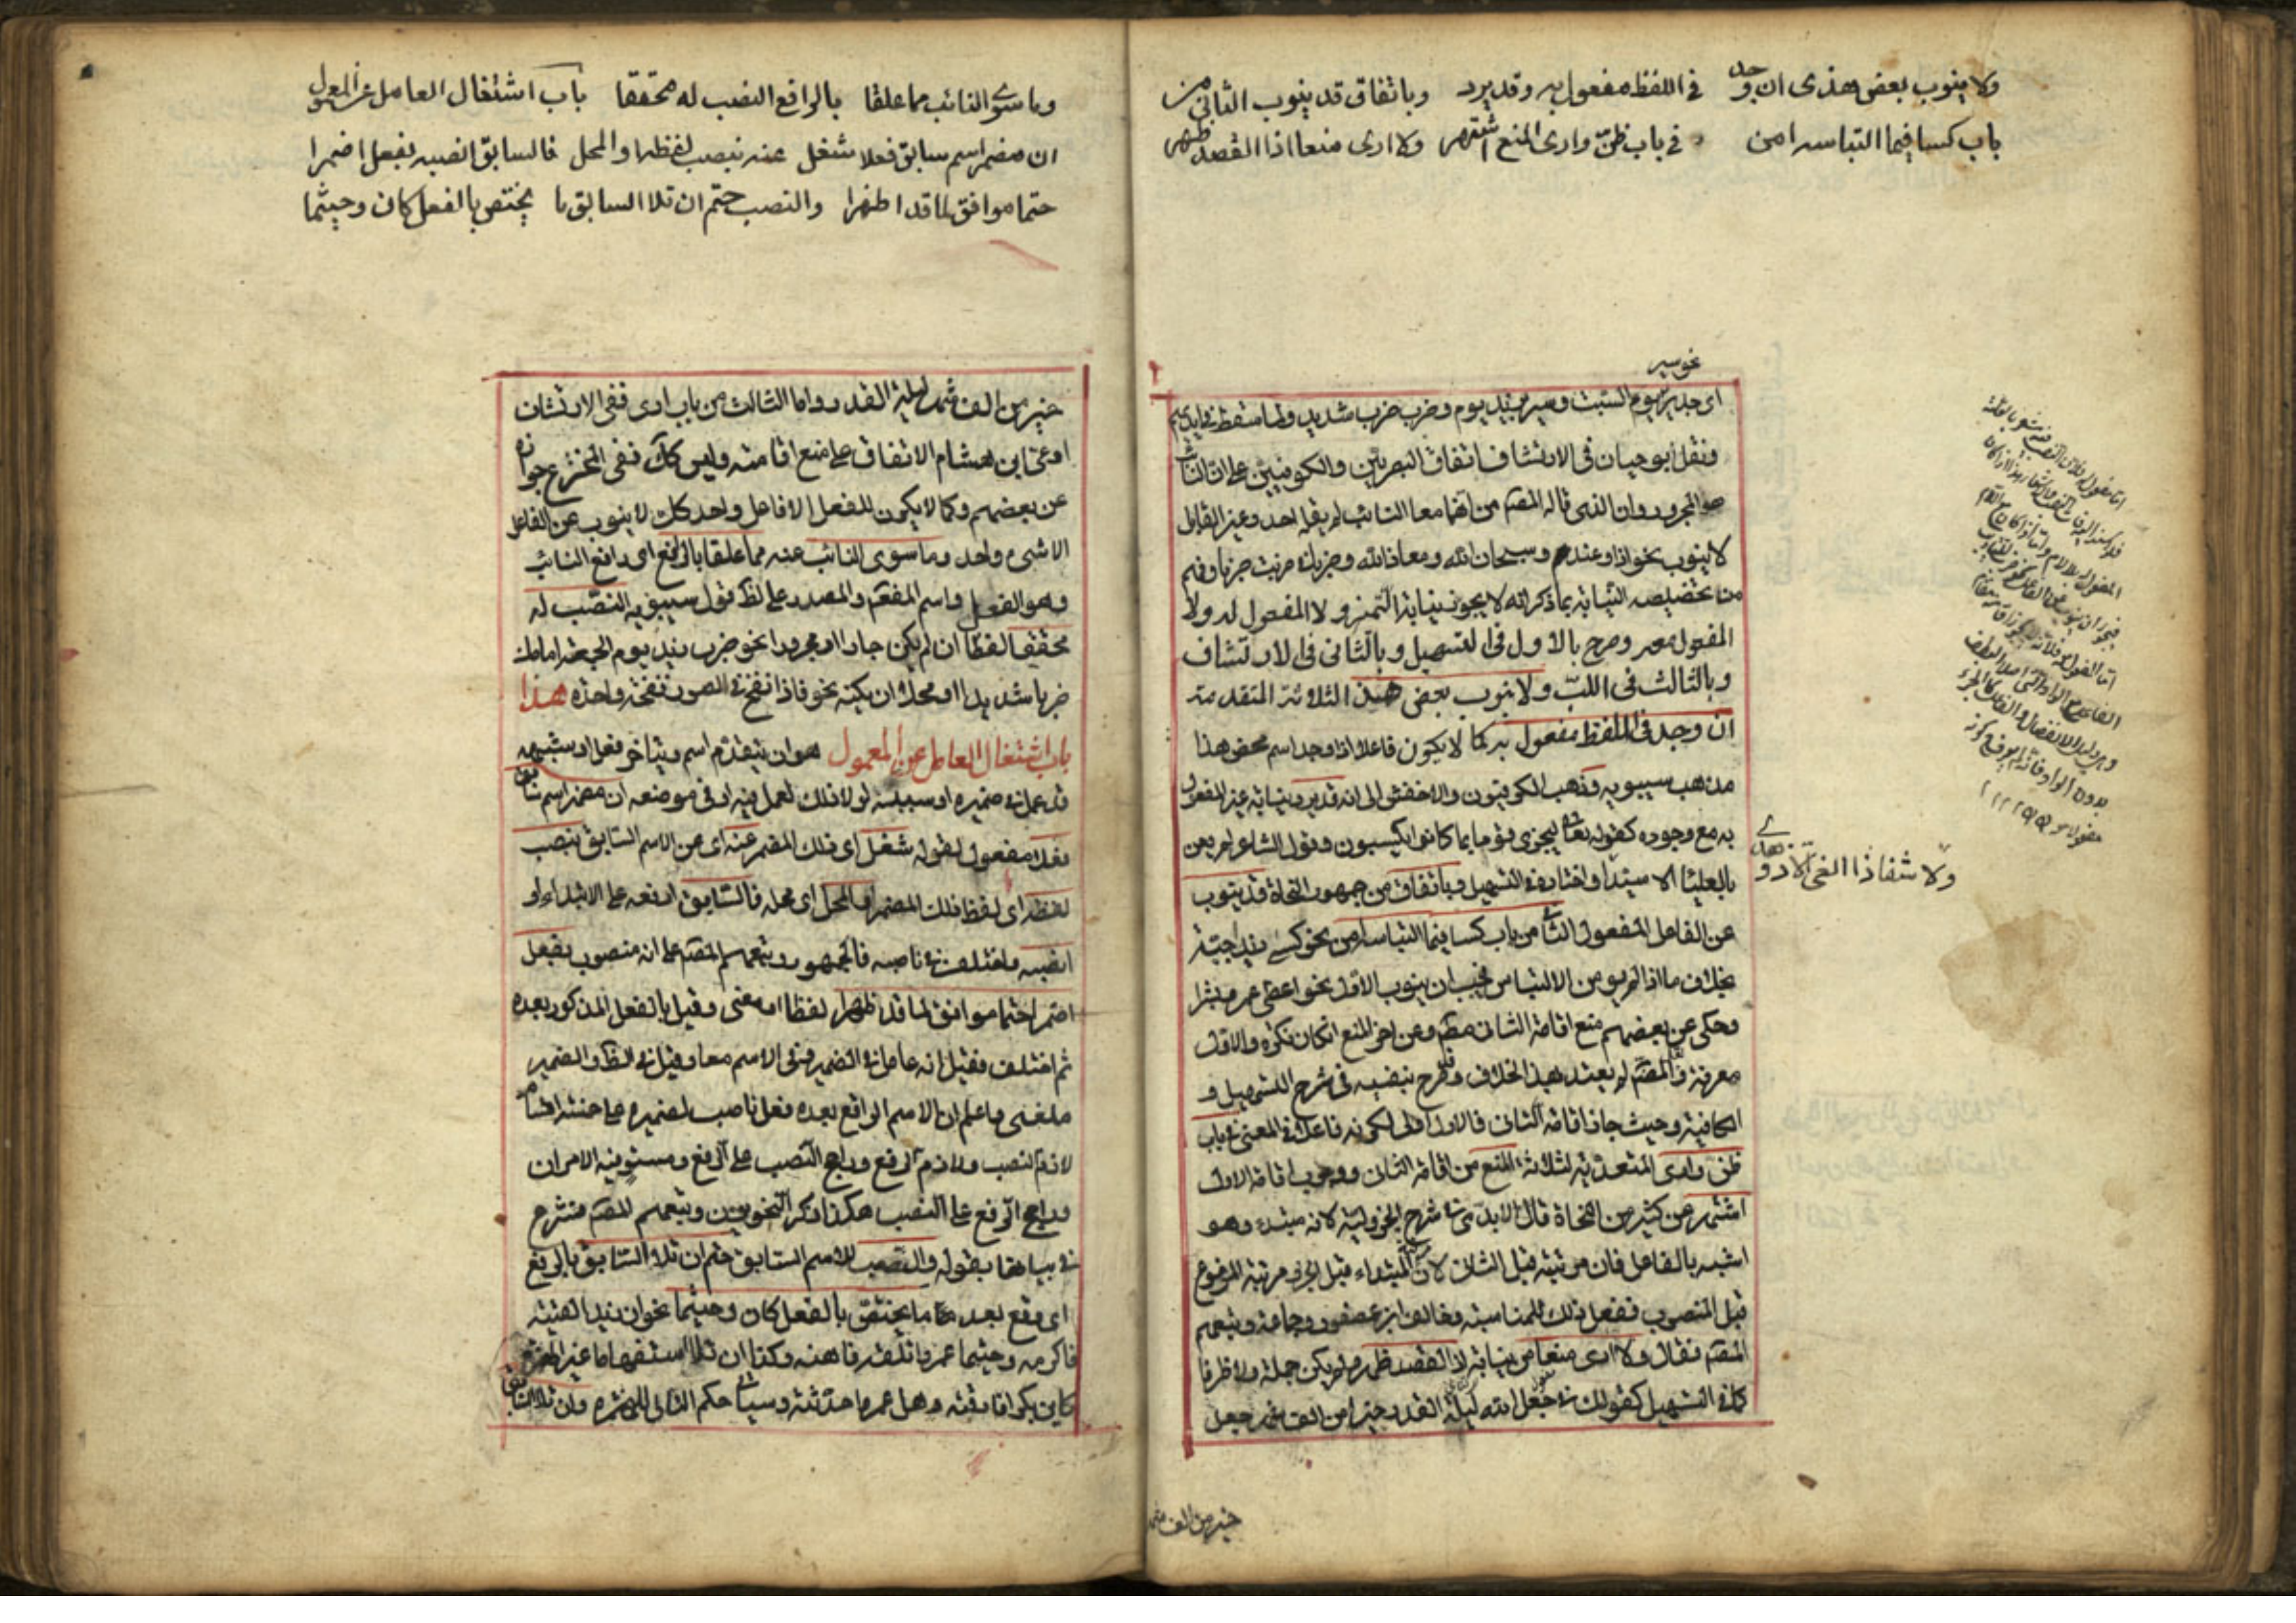 ولا ينوب بعض هذى ان وجد في اللفظ مفعول به وقد يرد وباتفاق قد ينوب الثاني من
باب كسا فيما التباسه امن في باب ظن وارى المنع اشتهر ولا ارى منعا اذا القصد ظهر
نحو سير
اى جدير يوم السبت وسير بزيد يوم وضرب ضرب شديد ولما سقط في ايديهم
ونقل ابو حيان في الارتشاف اتفاق البصريين والكوفيين على ان النائب
هو المجرور وان الذى قاله المصـ من انهما معا النائب لم يقله احد وغير القابل
لا ينوب نحو اذا وعند وسبحان الله ومعاذ الله وضربت ضربا وفهم
من تخصيصه النيابة بما ذكر انه لا يجوز نيابة التميز ولا المفعول له ولا
المفعول معه وصرح بالاول في التسهيل وبالثاني في الارتشاف
وبالثالث في اللب ولا ينوب بعض هذى الثلاثة المتقدمة
ان وجد في اللفظ مفعول به كما لا يكون فاعلا اذا وجد اسم محض هذا
مذهب سيبويه وذهب الكوفيون والاخفش الى انه قد يرد نيابة غير المفعول
به مع وجوده كقوله تعا ليجزى قوما بما كانوا يكسبون وقول الشاعر لم يعن
بالعلياء الا سيدا واختاره في التسهيل وباتفاق من جمهور النحاة قد ينوب
ولا شفا ذا الغى الا ذو هدى
عن الفاعل المفعول الثانى من باب كسا فيما التباسه امن نحو كسى زيدا جبة
بخلاف ما اذا لم يؤمن الالتباس فيجب ان ينوب الاول نحو اعطى عمرو بشرا
وحكى عن بعضهم منع اقامة الثانى مطـ وعن اخر المنع ان كان نكرة والاول
معرفة والمصـ لم يعتد بهذا الخلاف وقد صرح بنفيه في شرح التسهيل و
الكافية وحيث جاز اقامة الثانى فالاول اولى لكونه فاعلا في المعنى في باب
ظن وارى المتعدية لثلاثة المنع من اقامة الثانى ووجوب اقامة الاول
اشتهر عن كثير من النحاة قال الابدى في شرح الجزولية لانه مبتدء وهو
اشبه بالفاعل فان مرتبته قبل الثانى لان المبتداء قبل الخبر ومرتبة المرفوع
قبل المنصوب ففعل ذلك للمناسبة وخالف ابن عصفور وجماعة وتبعهم
المصـ فقال ولا ارى منعا من نيابته اذا القصد ظهر ولم يكن جملة ولا ظرفا
كما في التسهيل كقولك في جعل الله ليلة القدر خيرا من الف شهر جعل
خير من الف شهر
وما سوى النائب مما علقا بالرافع النصب له محققا باب اشتغال العامل عن المعمول
ان مضمر اسم سابق فعلا شغل عنه بنصب لفظه او المحل فالسابق انصبه بفعل اضمرا
حتما موافق لما قد اظهرا والنصب حتم ان تلا السابق ما يختص بالفعل كان وحيثما
خير من الف شهر ليلة القدر واما الثالث من باب ارى ففى الارتشاف
ادعى ابن هشام الاتفاق على منع اقامته وليس كك ففى المخترع جوازه
عن بعضهم وكما لا يكون للفعل الا فاعل واحد كك لا ينوب عن الفاعل
الا شىء واحد وما سوى النائب عنه مما علقا بالرافع اى رافع النائب
وهو الفعل واسم المفعـ والمصدر على لظ قول سيبويه النصب له
محققا لفظا ان لم يكن جارا ومجرورا نحو ضرب زيد يوم الجمعة امامك
ضربا شديدا او محلا ان يكنه نحو فاذا نفخ في الصور نفخة واحدة هذا
باب اشتغال العامل عن المعمول هو ان يتقدم اسم ويتاخر فعل او شبهه
قد عمل في ضميره او سببيه لولا ذلك لعمل فيه او في موضعه ان مضمر اسم سابق
فعلا مفعول لقوله شغل اى ذلك المضمر عنه اى عن الاسم السابق بنصب
لفظه اى لفظ ذلك المضمر او المحل اى محله فالسابق ارفعه على الابتداء او
انصبه واختلف في ناصبه فالجمهور وتبعهم المصـ على انه منصوب بفعل
اضمرا حتما موافق لما قد اظهرا لفظا او معنى وقيل بالفعل المذكور بعده
ثم اختلف فقيل انه عامل في الضمير وفى الاسم معا وقيل في الظ والضمير
ملغى واعلم ان الاسم الواقع بعده فعل ناصب لضميره على خمسة اقسام
لازم النصب ولازم الرفع وراجح النصب على الرفع ومستو فيه الامران
وراجح الرفع على النصب هكذا ذكر النحويون وتبعهم المصـ فشرع
في بيانها بقوله والنصب للاسم السابق حتم ان تلا السابق بالرفع
اى وقع بعد ما يختص بالفعل كان وحيثما نحو ان زيدا لقيته
فاكرمه وحيثما عمرا تلقه فاهنه وكذا ان تلا استفهاما غير الهمزة
كاين بكرا فارقته وهل عمرا حدثته وسياتى حكم التالى للهمزة وان تلا السابق